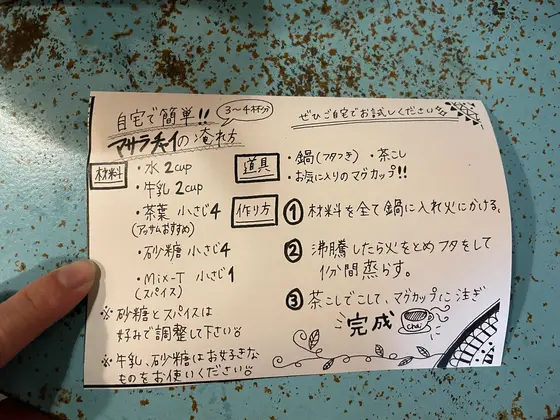 自宅で簡単!!
3〜4杯分
マサラチャイの淹れ方
ぜひご自宅でお試しください
材料
・水 2cup
・牛乳 2cup
・茶葉 小さじ4
(アッサムおすすめ)
・砂糖 小さじ4
・Mix-T 小さじ1
(スパイス)
※砂糖とスパイスは
好みで調整して下さい
※牛乳、砂糖はお好きな
ものをお使いください
道具
・鍋(フタつき) ・茶こし
・お気に入りのマグカップ!!
作り方
① 材料を全て鍋に入れ火にかける。
② 沸騰したら火をとめフタをして
1分間蒸らす。
③ 茶こしでこして、マグカップに注ぎ
完成
chai